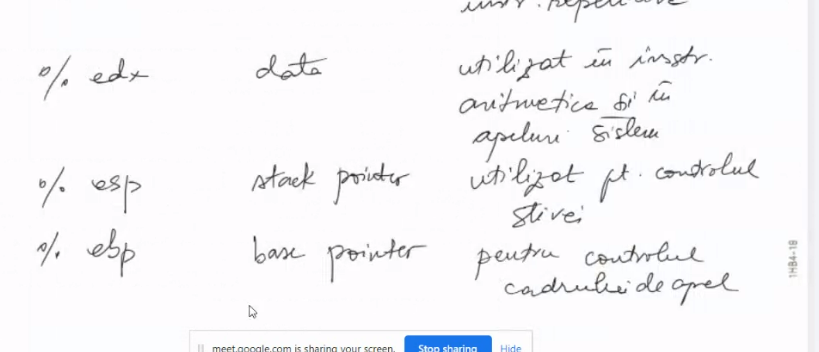 instr. repetitive
% edx data utilizat în instr.
aritmetica și în
apeluri sistem
% esp stack pointer utilizat pt. controlul
stivei
% ebp base pointer pentru controlul
cadrului de apel
1HB4-18
meet.google.com is sharing your screen. Stop sharing Hide